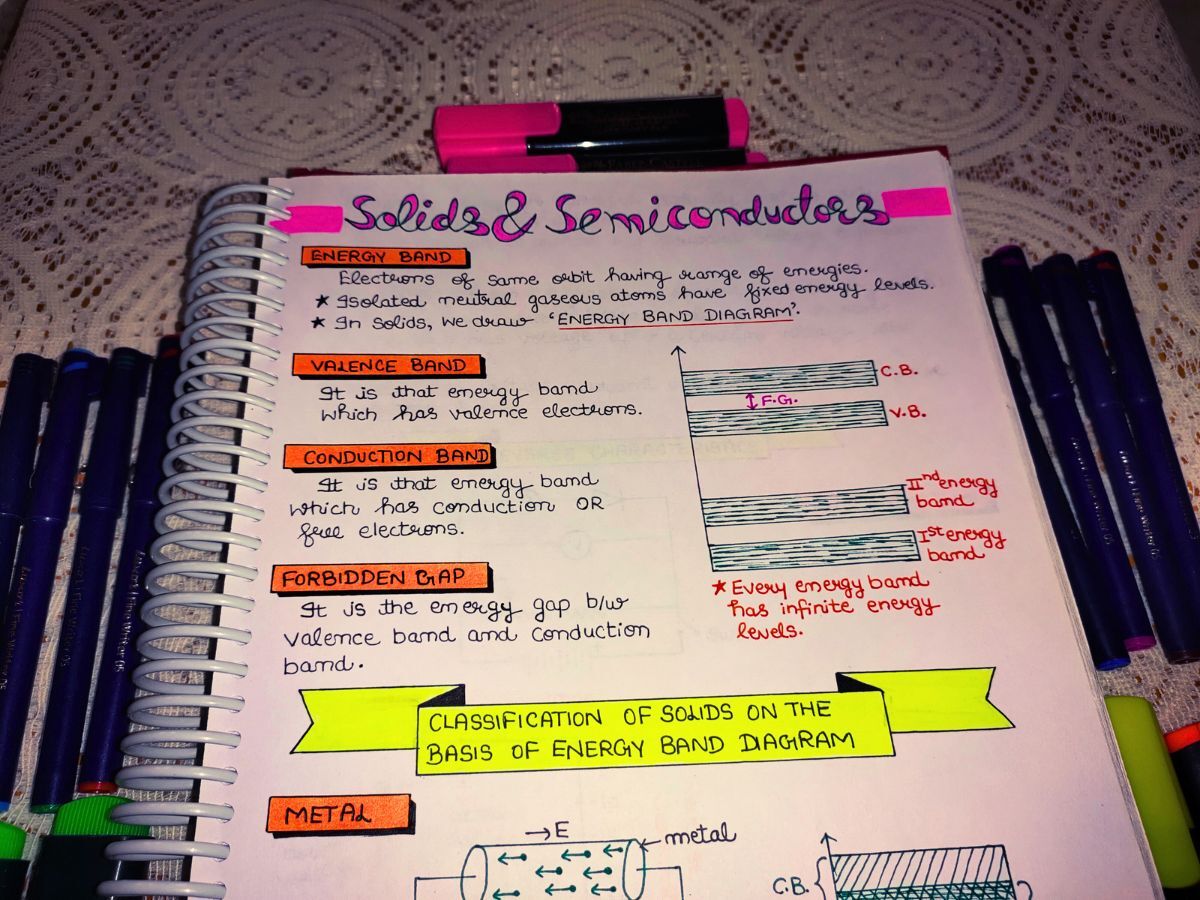 Solids & Semiconductors
ENERGY BAND
Electrons of same orbit having range of energies.
★ Isolated neutral gaseous atoms have fixed energy levels.
★ In solids, we draw 'ENERGY BAND DIAGRAM'.
VALENCE BAND
It is that energy band
which has valence electrons.
CONDUCTION BAND
It is that energy band
which has conduction OR
free electrons.
FORBIDDEN GAP
It is the energy gap b/w
valence band and conduction
band.
C.B.
F.G.
V.B.
IInd energy
band
Ist energy
band
★ Every energy band
has infinite energy
levels.
CLASSIFICATION OF SOLIDS ON THE
BASIS OF ENERGY BAND DIAGRAM
METAL
→E
metal
C.B.